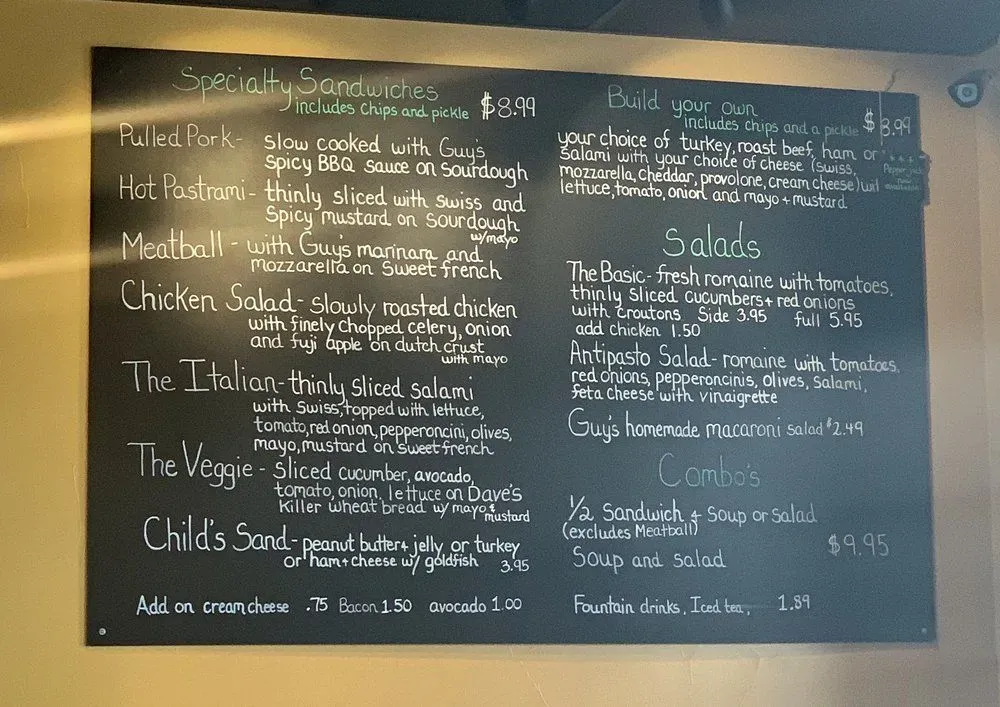 Specialty Sandwiches
includes chips and pickle $8.99
Pulled Pork- slow cooked with Guy's
spicy BBQ sauce on sourdough
Hot Pastrami- thinly sliced with swiss and
spicy mustard on sourdough
w/mayo
Meatball - with Guy's marinara and
mozzarella on sweet french
Chicken Salad- slowly roasted chicken
with finely chopped celery, onion
and fuji apple on dutch crust
with mayo
The Italian- thinly sliced salami
with swiss, topped with lettuce,
tomato, red onion, pepperoncini, olives,
mayo, mustard on sweet french
The Veggie - sliced cucumber, avocado,
tomato, onion, lettuce on Dave's
killer wheat bread w/ mayo +
mustard
Child's Sand- peanut butter + jelly or turkey
or ham + cheese w/ goldfish 3.95
Add on cream cheese .75 Bacon 1.50 avocado 1.00
Build your own
includes chips and a pickle $8.99
your choice of turkey, roast beef, ham or
salami with your choice of cheese (swiss,
mozzarella, cheddar, provolone, cream cheese) wi
lettuce, tomato, onion and mayo + mustard
Pepper jack
now
available
Salads
The Basic- fresh romaine with tomatoes,
thinly sliced cucumbers + red onions
with croutons Side 3.95 full 5.95
add chicken 1.50
Antipasto Salad- romaine with tomatoes,
red onions, pepperoncinis, olives, salami,
feta cheese with vinaigrette
Guy's homemade macaroni salad $2.49
Combo's
1/2 Sandwich + Soup or Salad
(excludes Meatball)
$9.95
Soup and salad
Fountain drinks, Iced tea, 1.89